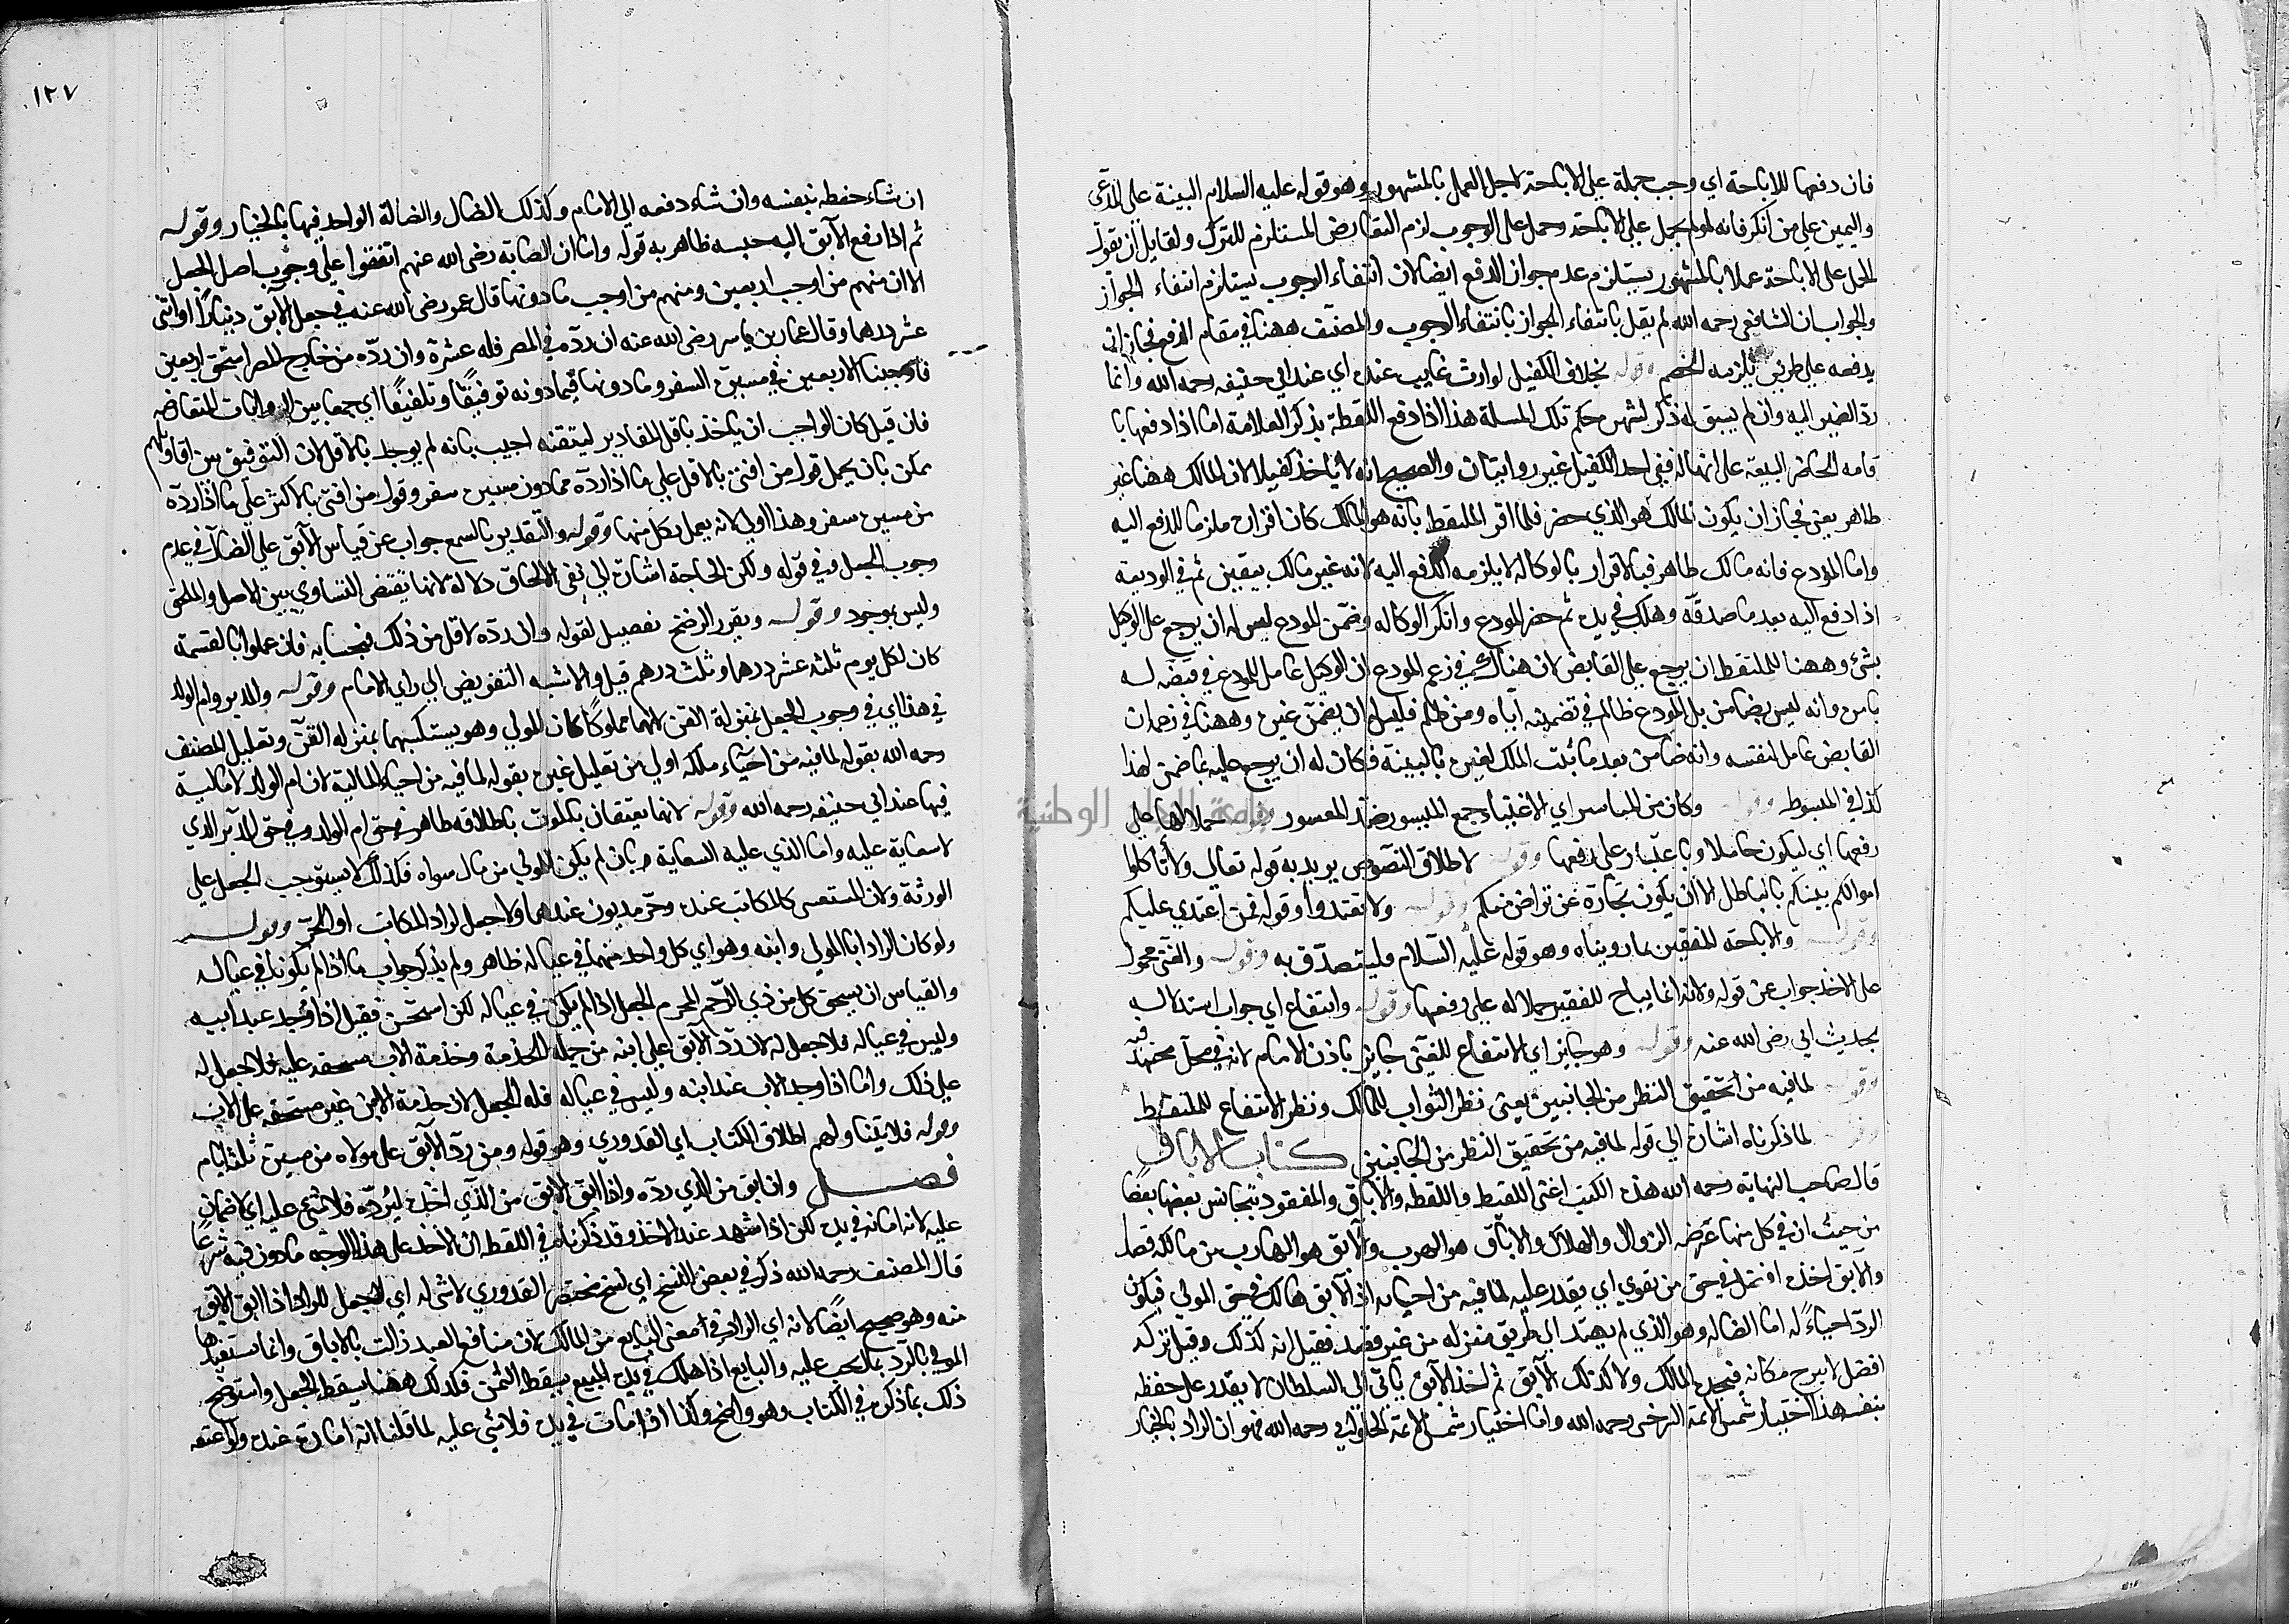 فان دفعها للاباحة اي وجب حملة علي الاباحة لاجل العمل بالمشهور وهو قوله عليه السلام البينة علي المدعي
واليمين علي من انكر فانه لو لم يحمل علي الاباحة وحمل على الوجوب لزم التعارض المستلزم للترك ولقايل ان يقول
الحمل على الاباحة عملا بالمشهور يستلزم عدم جواز الدفع ايضا لان انتفاء الوجوب يستلزم انتفاء الجواز
والجواب ان الشافعي رحمه الله لم يقل بانتفاء الجواز بانتفاء الوجوب والمصنف ههنا في مقام الدفع فجاز ان
يدفعه على طريق يلزمه الخصم وقوله بخلاف الكفيل لوارث غايب عنده اي عند ابي حنيفه رحمه الله وانما
ردّ الضمير اليه وان لم يسبق له ذكر لشهرة حكم تلك المسلة هذا اذا دفع اللقطة بذكر العلامة اما اذا دفعها با
قامه الحاضر البينة على انها له ففي اخذ الكفيل غير روايتان والصحيح انه لا ياخذ كفيلا لان المالك ههنا غير
ظاهر يعني فجاز ان يكون المالك هو الذي حضر فلما اقر الملتقط بانه هو المالك كان اقراره ملزما للدفع اليه
واما المودع فانه مالك ظاهر فبالاقرار بالوكاله لا يلزمه الدفع اليه لانه غير مالك بيقين ثم في الوديعة
اذا دفع اليه بعد ما صدقه وهلك في يده ثم حضر المودع وانكر الوكاله وضمن المودع ليس له ان يرجع على الوكيل
بشيء وههنا للملتقط ان يرجع علي القابض لان هناك في زعم المودع ان الوكيل عامل للمودع في قبضه له
بامره وانه ليس بضامن بل المودع ظالم في تضمينه اياه ومن ظلم فليس له ان يضمن غيره وههنا في زعمه ان
القابض عامل لنفسه وانه ضامن بعد ما ثبت الملك لغيره بالبينة فكان له ان يرجع عليه بما ضمن لهذا
كذا في المبسوط وقوله وكان من المياسير اي الاغنياء جمع الميسور ضد المعسور وقوله حملا لها علي
رفعها اي ليكون حاملا وباعثا له على رفعها وقوله لاطلاق النصوص يريد به قوله تعالي ولا تاكلوا
اموالكم بينكم بالباطل الا ان يكون تجارة عن تراض منكم وقوله ولا تعتدوا وقوله فمن اعتدي عليكم
وقوله والاباحة للفقير بما رويناه وهو قوله عليه السلام فليتصدق به وقوله والغني محمول
على الاخذ جواب عن قوله ولانه انما يباح للفقير حملا له علي رفعها وقوله وانتفاع اي جواب استدلاله
بحديث ابي رضى الله عنه وقوله وهو جايز اي الانتفاع للغني جايز باذن الامام لانه في محل مجتهد فيه
وقوله لما فيه من تحقيق النظر من الجانبين يعني نظر الثواب للمالك ونظر الانتفاع للملتقط
وقوله لما ذكرناه اشارة الي قوله لما فيه من تحقيق النظر من الجانبين كتاب الاباق
قال صاحب النهاية رحمه الله هذه الكتب اعني اللقيط واللقطه والاباق والمفقود تجانس بعضها بعضا
من حيث ان في كل منها عرضه الزوال والهلاك والاباق هو الهرب والآبق هو الهارب من مالكه قصدا
والآبق اخذه افضل في حق من يقوي اي يقدر عليه لما فيه من احيائه اذ الآبق هالك في حق المولي فيكون
الردّ احياءً له اما الضاله وهو الذي لم يهتد الي طريق منزله من غير قصد فقيل انه كذلك وقيل تركه
افضل لا يبرح مكانه فيجده المالك ولا كذلك الآبق ثم اخذ الآبق ياتي الي السلطان لا يقدر على حفظه
بنفسه هذا اختيار شمس الايمة السرخسي رحمه الله واما اختيار شمس الايمة الحلواني رحمه الله فهو ان الراد بالخيار
١٢٧
ان شاء حفظه بنفسه وان شاء دفعه الي الامام وكذلك الضال والضالة الواحد فيها بالخيار وقوله
ثم اذا دفع الآبق اليه حبسه ظاهر به قوله واما ان الصحابة رضى الله عنهم اتفقوا علي وجوب اصل الجعل
الا ان منهم من اوجب اربعين ومنهم من اوجب ما دونها قال عمر رضى الله عنه في جعل الابق دينارًا او اثني
عشر درهما وقال عمار بن ياسر رضى الله عنه ان ردّه في المصر فله عشرة وان ردّه من خارج المصر استحق اربعين
فاوجبنا الاربعين في مسيرة السفر وما دونها فيما دونه توفيقًا وتلفيقًا اي جمعا بين الروايات المتعارضه
فان قيل كان الواجب ان ياخذ باقل المقادير لتيقنه اجيب بانه لم يوخذ بالاقل لان التوفيق بين اقاويلهم
ممكن بان يحمل قول من افتي بالاقل علي ما اذا ردّه مما دون مسيرة سفر وقول من افتي بالاكثر علي ما اذا ردّه
من مسيرة سفر وهذا اولي لانه يعمل بكل منها وقوله والتقدير بالسمع جواب عن قياس الآبق علي الضال في عدم
وجوب الجعل وفي قوله ولكن الحاجة اشارة الي نفي الالحاق دلالة لانها تقتضي التساوي بين الاصل والملحق
وليس بموجود وقوله ويقرر الرضخ تفصيل لقوله وان ردّه لاقل من ذلك فبحسابه فان عملوا بالقسمة
كان لكل يوم ثلثه عشر درهما وثلث درهم قيل والاشبه التفويض الي راي الامام وقوله والمدبر وام الولد
في هذا اي في وجوب الجعل بمنزلة القن لانهما مملوكان للمولي وهو يستكسبهما بمنزله القنّ وتعليل المصنف
رحمه الله بقوله لما فيه من احياء ملكه اولي من تعليل غيره بقوله لما فيه من احياء المالية لان ام الولد لا مالية
فيها عند ابي حنيفه رحمه الله وقوله لانهما يعتقان بالموت باطلاقه ظاهر في حق ام الولد وفي حق المدبر الذي
لا سعاية عليه واما الذي عليه السعاية بان لم يكن للمولي من مال سواه فكذلك لا يستوجب الجعل علي
الورثة ولان المستسعى كالمكاتب عنده وحرّ مديون عندهما ولا جعل لراد المكاتب او الحرّ وقوله
ولو كان الراد ابا المولي وابنه وهو اي كل واحد منهما في عياله ظاهر ولم يذكر جواب ما اذا لم يكونا في عياله
والقياس ان يستحق كل من ذي الرحم المحرم الجعل اذا لم يكن في عياله لكن استحسن فقيل اذا وجد عبد ابيه
وليس في عياله فلا جعل له لان ردّ الآبق علي ابنه من جملة الخدمة وخدمة الاب مستحقه عليه فلا جعل له
علي ذلك واما اذا وجد الاب عبد ابنه وليس في عياله فله الجعل لان خدمة الابن غير مستحقه على الاب
وقوله فلا يتناولهم اطلاق الكتاب اي القدوري وهو قوله ومن ردّ الآبق على مولاه من مسيرة ثلثة ايام
فصل وان ابق من الذي ردّه واذا ابق الابق من الذي اخذه ليردّه فلا شيء عليه اي لا ضمان
عليه لانه امانه في يده لكن اذا اشهد عند الاخذ وقد ذكرناه في اللقطه ان الاخذ على هذا الوجه ماذون فيه شرعا
قال المصنف رحمه الله ذكر في بعض النسخ اي نسخ مختصر القدوري لا شي له اي لا جعل للراد اذا ابق الابق
منه وهو صحيح ايضًا لانه اي الراد في معني البايع من المالك لان منافع العبد زالت بالاباق وانما يستفيدها
المولي بالرد بما يجب عليه والبايع اذا هلك في يده المبيع يسقط الثمن فكذلك ههنا يسقط الجعل واستوضح
ذلك بما ذكره في الكتاب وهو واضح وكذا اذا مات في يده فلا شيء عليه لما قلنا انه امانة عنده ولو اعتقه